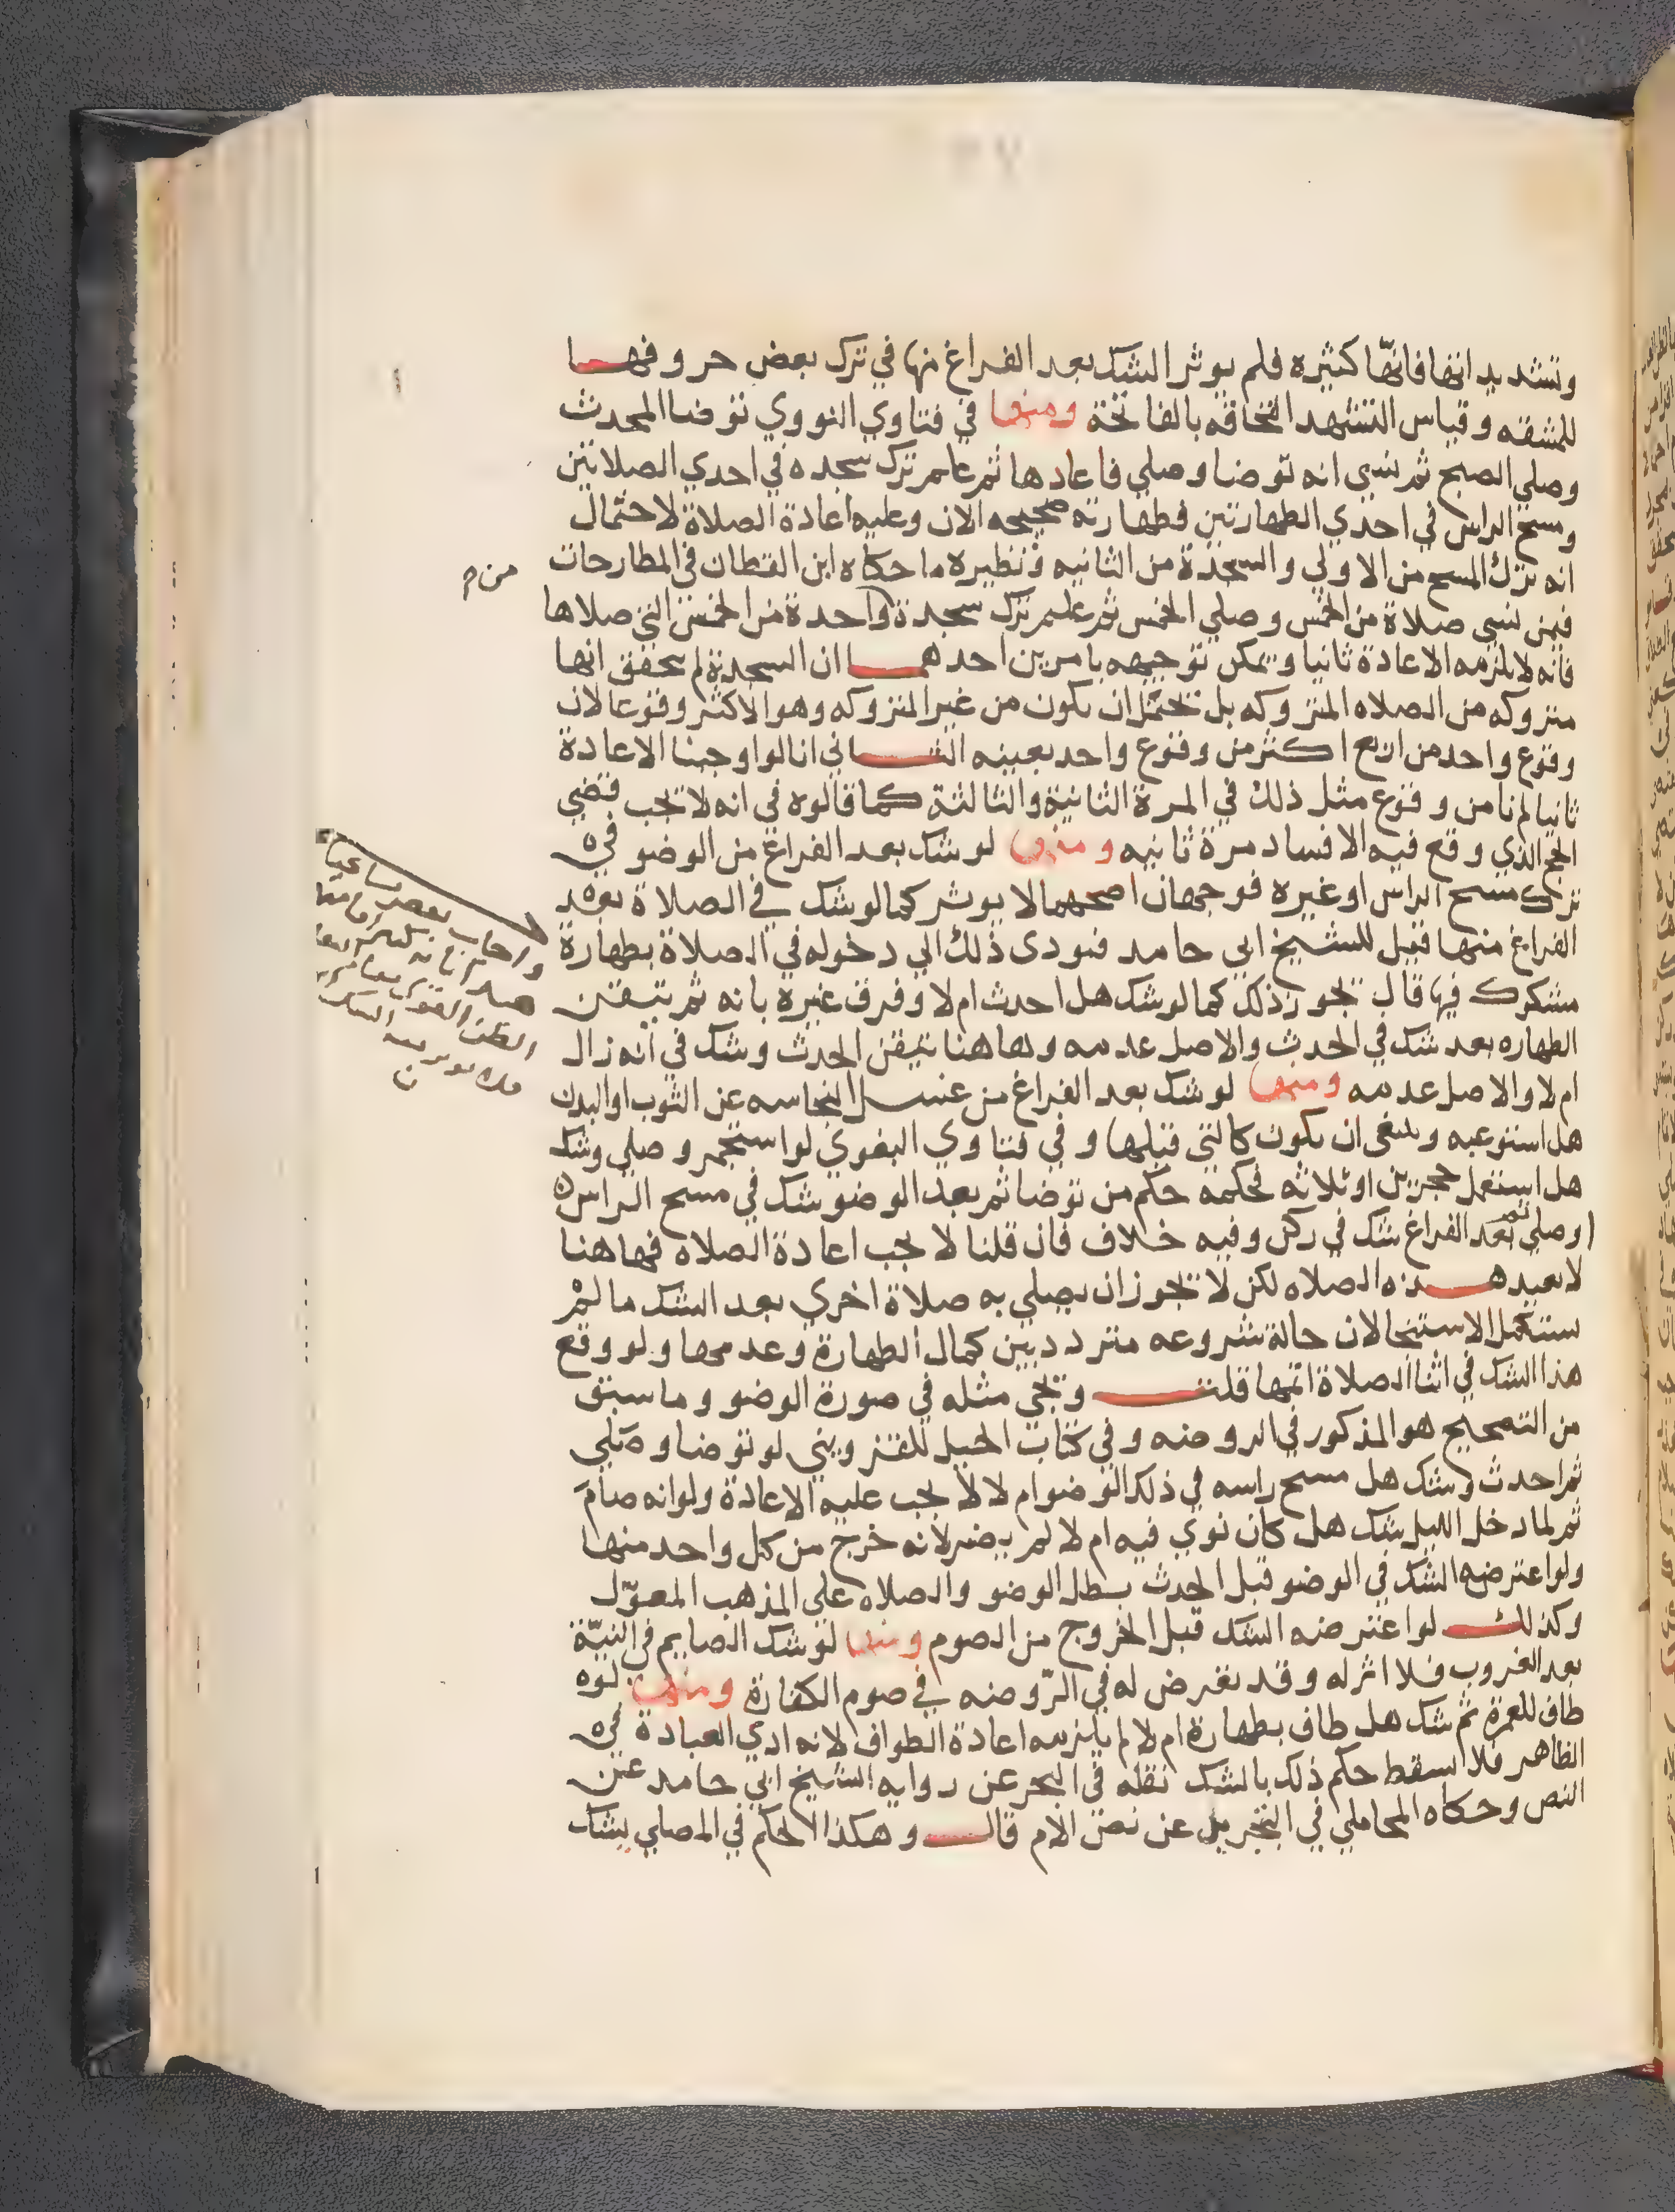 وتشديداتها فانها كثيره فلم يوثر الشك بعد الفراغ منها في ترك بعض حروفها
للمشقه وقياس التشهد الحاقه بالفاتحة ومنها في فتاوي النووي توضا المحدث
وصلي الصبح ثم نسي انه توضا وصلي فاعادها ثم علم ترك سجده في احدي الصلاتين
ومسح الراس في احدي الطهارتين فطهارته صحيحه الان وعليه اعادة الصلاة لاحتمال
انه ترك المسح من الاولي والسجدة من الثانيه ونظيره ما حكاه ابن القطان في المطارحات
فيمن نسي صلاة من الخمس وصلي الخمس ثم علم ترك سجدة واحدة من الخمس التي صلاها
فانه لا يلزمه الاعادة ثانيا ويمكن توجيهه بامرين احدهما ان السجدة لم تتحقق انها
متروكه من الصلاه المتروكه بل تحتمل ان يكون من غير المتروكه وهو الاكثر وقوعا لان
وقوع واحد من اربع اكثر من وقوع واحد بعينه الثاني انا لو اوجبنا الاعادة
ثانيا لم نامن وقوع مثل ذلك في المرة الثانية والثالثة كما قالوه في انه لا تجب قضي
الحج الذي وقع فيه الافساد مرة ثانيه ومنها لو شك بعد الفراغ من الوضو في
ترك مسح الراس او غيره فوجهان اصحهما لا يوثر كما لو شك في الصلاة بعد
الفراغ منها فقيل للشيخ ابي حامد فيودي ذلك الي دخوله في الصلاة بطهارة
مشكوك فيها قال تجوز ذلك كما لو شك هل احدث ام لا وفرق غيره بانه ثم تيقن
الطهاره بعد شك في الحدث والاصل عدمه وهاهنا تيقن الحدث وشك في انه زال
ام لا والاصل عدمه ومنها لو شك بعد الفراغ من غسل النجاسه عن الثوب او البدن
هل استوعبه وينبغي ان يكون كالتي قبلها وفي فتاوي البغوي لو استجمر وصلي وشك
هل استعمل حجرين او ثلاثه فحكمه حكم من توضا ثم بعد الوضو شك في مسح الراس
او صلي ثم بعد الفراغ شك في ركن وفيه خلاف فان قلنا لا يجب اعادة الصلاه فهاهنا
لا يعيد هذه الصلاه لكن لا تجوز ان يصلي به صلاة اخري بعد الشك ما لم
يستكمل الاستنجا لان حالة شروعه متردد بين كمال الطهارة وعدمها ولو وقع
هذا الشك في اثنا الصلاة اتمها قلت وتجي مثله في صورة الوضو وما سبق
من التصحيح هو المذكور في الروضه وفي كتاب الحيل للقزويني لو توضا وصلي
ثم احدث وشك هل مسح راسه في ذلك الوضو ام لا لا يجب عليه الاعادة ولو انه صام
ثم لما دخل الليل شك هل كان نوي فيه ام لا لم يضر لانه خرج من كل واحد منها
ولو اعترضه الشك في الوضو قبل الحدث بطل الوضو والصلاه علي المذهب المعوّل
وكذلك لو اعترضه الشك قبل الخروج من الصوم ومنها لو شك الصايم في النيّة
بعد الغروب فلا اثر له وقد تعرض له في الرّوضه في صوم الكفارة ومنها لو
طاف للعمرة ثم شك هل طاف بطهارة ام لا لم يلزمه اعادة الطواف لانه ادي العبادة في
الظاهر فلا يسقط حكم ذلك بالشك نقله في البحر عن روايه الشيخ ابي حامد عن
النص وحكاه المحاملي في التجريد عن نص الام قال وهكذا الحكم في المصلي يشك